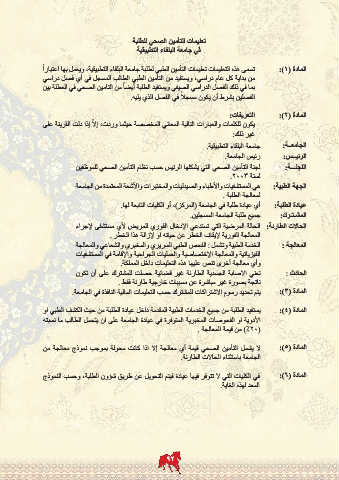 تعليمات التأمين الصحي للطلبة
في جامعة البلقاء التطبيقية
المادة (١): تسمى هذه التعليمات تعليمات التأمين الطبي لطلبة جامعة البلقاء التطبيقية، ويعمل بها اعتباراً
من بداية كل عام دراسي، ويستفيد من التأمين الطبي الطالب المسجل في أي فصل دراسي
بما في ذلك الفصل الدراسي الصيفي ويستفيد الطلبة أيضاً من التأمين الصحي في العطلة بين
الفصلين بشرط أن يكون مسجلاً في الفصل الذي يليه.
المادة (٢): التعريفات:
يكون للكلمات والعبارات التالية المعاني المخصصة حيثما وردت، إلا إذا دلت القرينة على
غير ذلك:
الجامعـــة: جامعة البلقاء التطبيقية.
الرئيـس: رئيس الجامعة.
اللجنـــة: لجنة التأمين الصحي التي يشكلها الرئيس حسب نظام التأمين الصحي للموظفين
لسنة ٢٠٠٣.
الجهة الطبية: هي المستشفيات والأطباء والصيدليات والمختبرات والأشعة المعتمدة من الجامعة
لمعالجة الطلبة.
عيادة الطلبة: أي عيادة طلبة في الجامعة (المركز)، أو الكليات التابعة لها.
المشترك: جميع طلبة الجامعة المسجلين.
الحالات الطارئة: الحالة المرضية التي تستدعي الإدخال الفوري للمريض لأي مستشفى لإجراء
المعالجة الفورية لإيقاف الخطر عن حياته أو لإزالة هذا الخطر.
المعالجة : الخدمة الطبية وتشمل: الفحص الطبي السريري والمخبري والشعاعي والمعالجة
الفيزيائية والمعالجة الإختصاصية والعمليات الجراحية والإقامة في المستشفيات
وأي معالجة أخرى تنص عليها هذه التعليمات داخل المملكة.
الحادث : تعني الاصابة الجسمية الطارئة غير المتأتية حصلت للمشترك على أن تكون
ناتجة بصورة غير مباشرة عن مسببات خارجية طارئة فقط.
المادة (٣): يتم تحديد رسوم الاشتراكات للمشترك حسب التعليمات المالية النافذة في الجامعة.
المادة (٤): يستفيد الطلبة من جميع الخدمات الطبية المقدمة داخل عيادة الطلبة من حيث الكشف الطبي أو
الأدوية أو الفحوصات المخبرية المتوفرة في عيادة الجامعة على أن يتحمل الطالب ما نسبته
(٢٠٪) من قيمة المعالجة.
المادة (٥): لا يشمل التأمين الصحي قيمة أي معالجة إلا اذا كانت محولة بموجب نموذج معالجة من
الجامعة باستثناء الحالات الطارئة.
المادة (٦): في الكليات التي لا تتوفر فيها عيادة فيتم التحويل عن طريق شؤون الطلبة، وحسب النموذج
المعد لهذه الغاية.